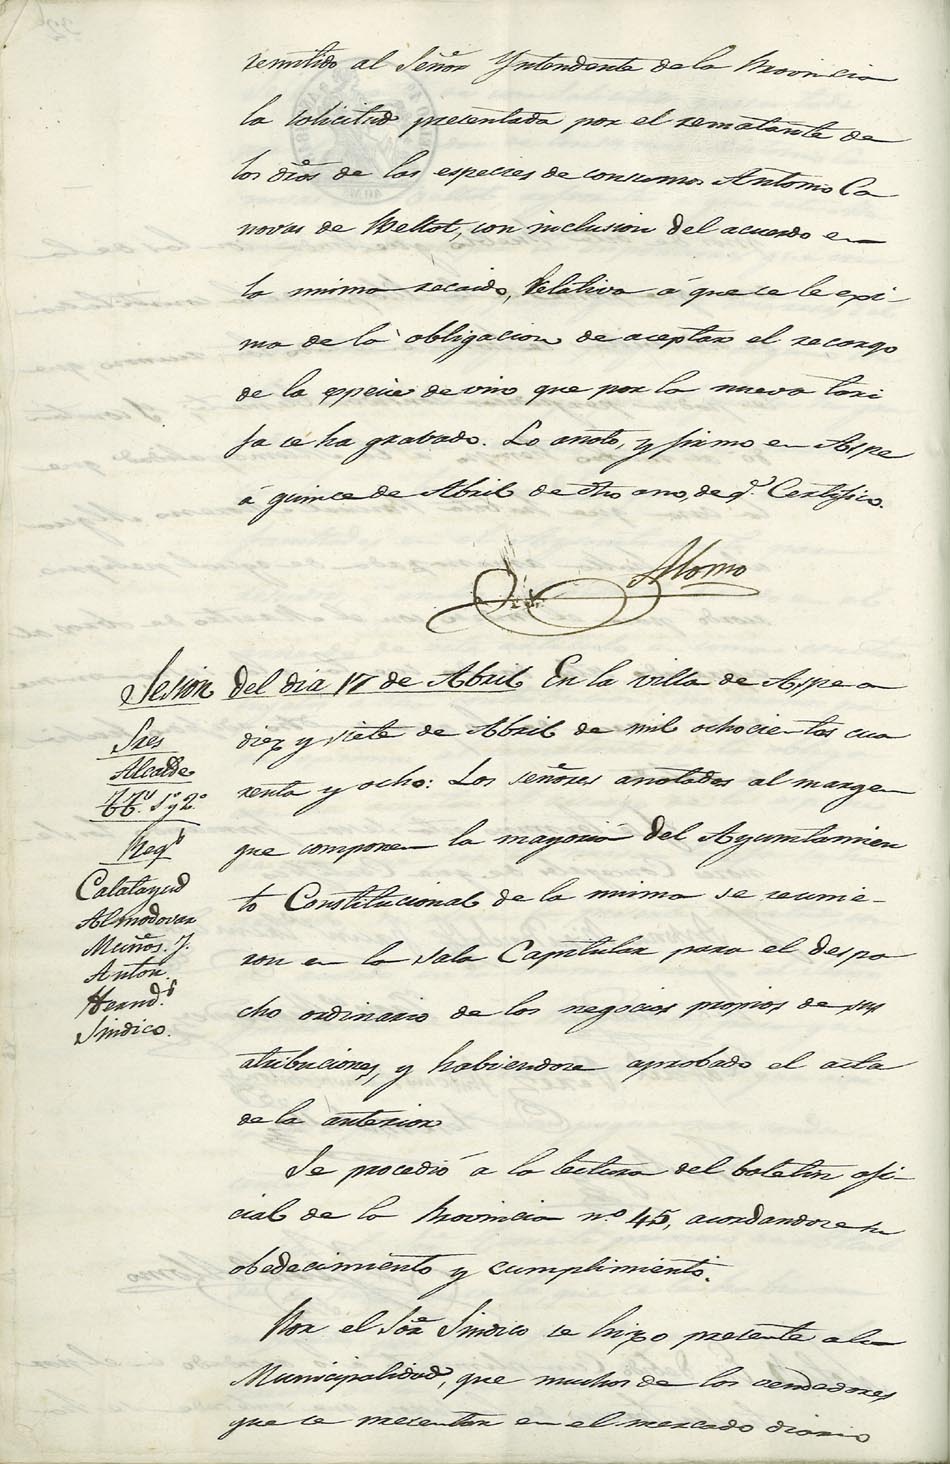 remitido al Señor Yntendente de la Provincia
la solicitud presentada por el rematante de
los dros de las especies de consumos Antonio Ca
novas de Meltot, con inclusion del acuerdo en
la misma recaido, Relativa á que se le exi-
ma de la obligacion de aceptar el recargo
de la especie de vino que por la nueva tari
fa se ha gravado. Lo anoto, y firmo en Aspe
á quince de Abril de dho ano, de q.e Certifico.
Alonso
Sesion del dia 17 de Abril En la villa de Aspe a
diez y siete de Abril de mil ochocientos cua
renta y ocho: Los señores anotados al margen
que componen la mayoria del Ayuntamien
to Constitucional de la misma se reunie-
ron en la sala Capitular para el despa
cho ordinario de los negocios propios de sus
atribuciones, y habiendose aprobado el acta
de la anterior
Sres
Alcalde
tt.es 1.º y 2.º
Reg.s
Calatayud
Almodovar
Muños. J.
Anton.
Hernd.s
Sindico.
Se procedió a la lectura del boletin ofi-
cial de la Provincia n.º 45, acordandose su
obedecimiento y cumplimiento.
Por el Sor Sindico se hizo presente a la
Municipalidad, que muchos de los vendedores
que se presentan en el mercado diario